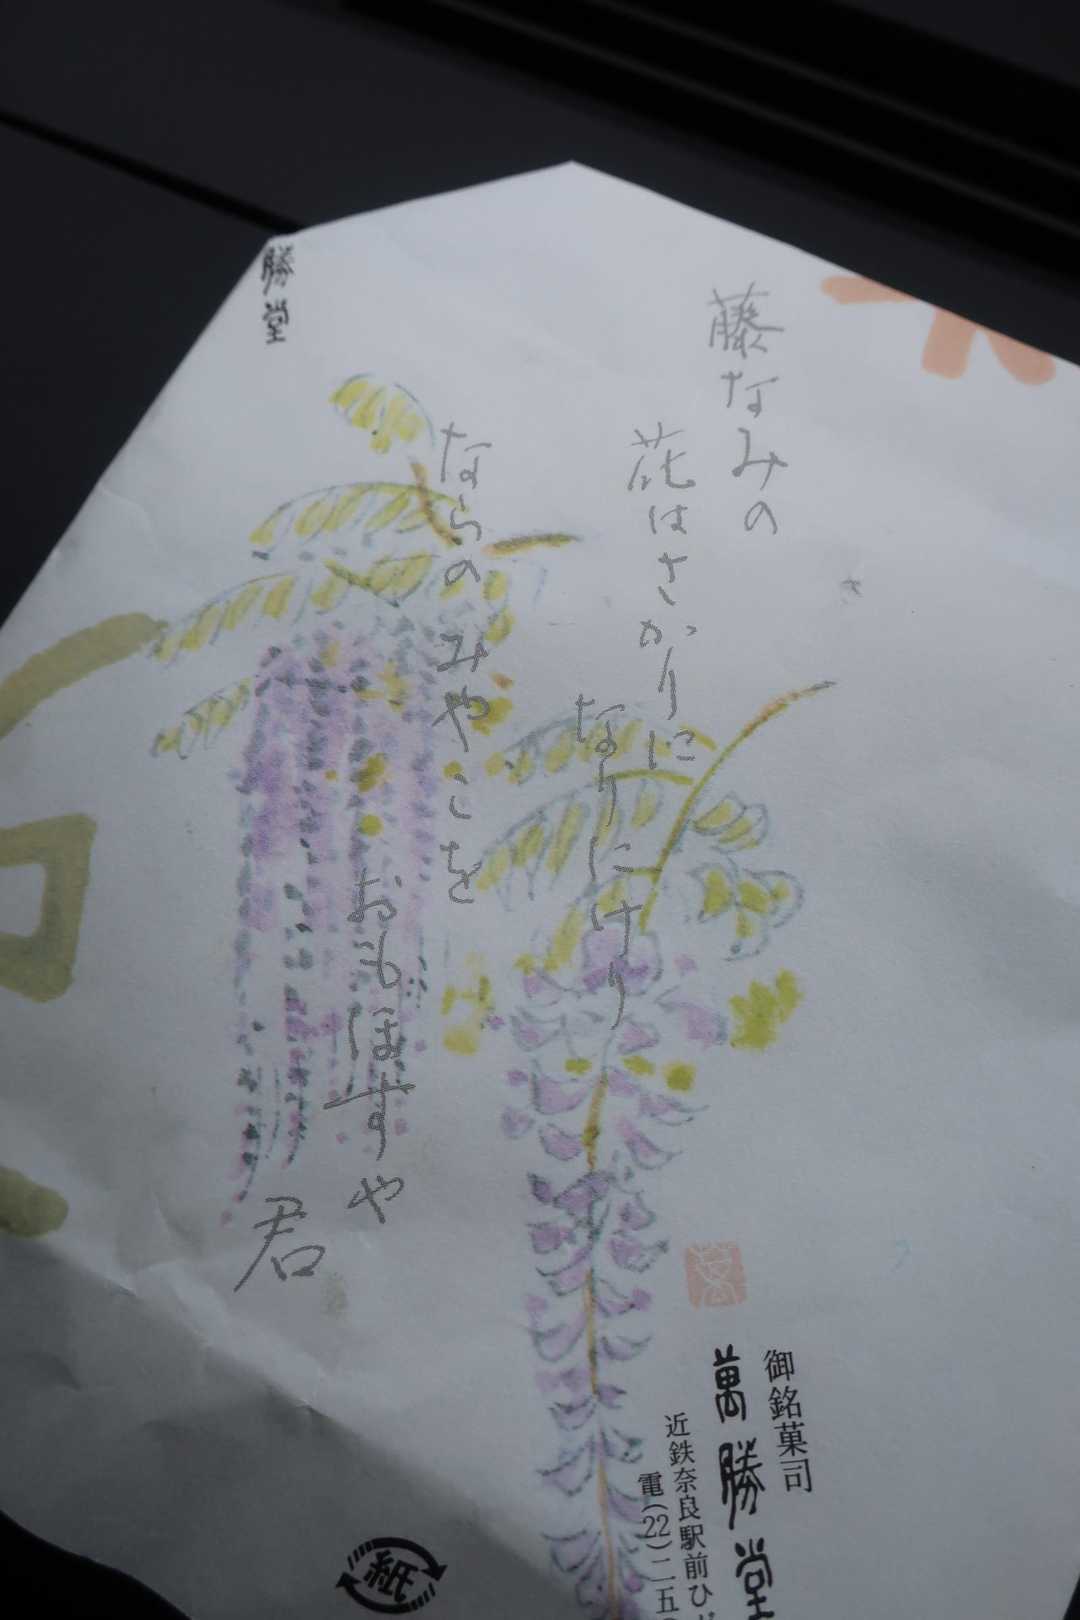 藤なみの
花はさかりに
なりにけり
ならのみやこを
おもほすや
君
勝堂
御銘菓司
萬勝堂
近鉄奈良駅前ひ
電(22)二五
紙